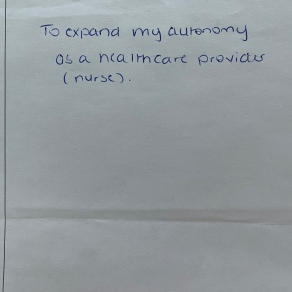 To expand my autonomy
as a healthcare provider
(nurse).